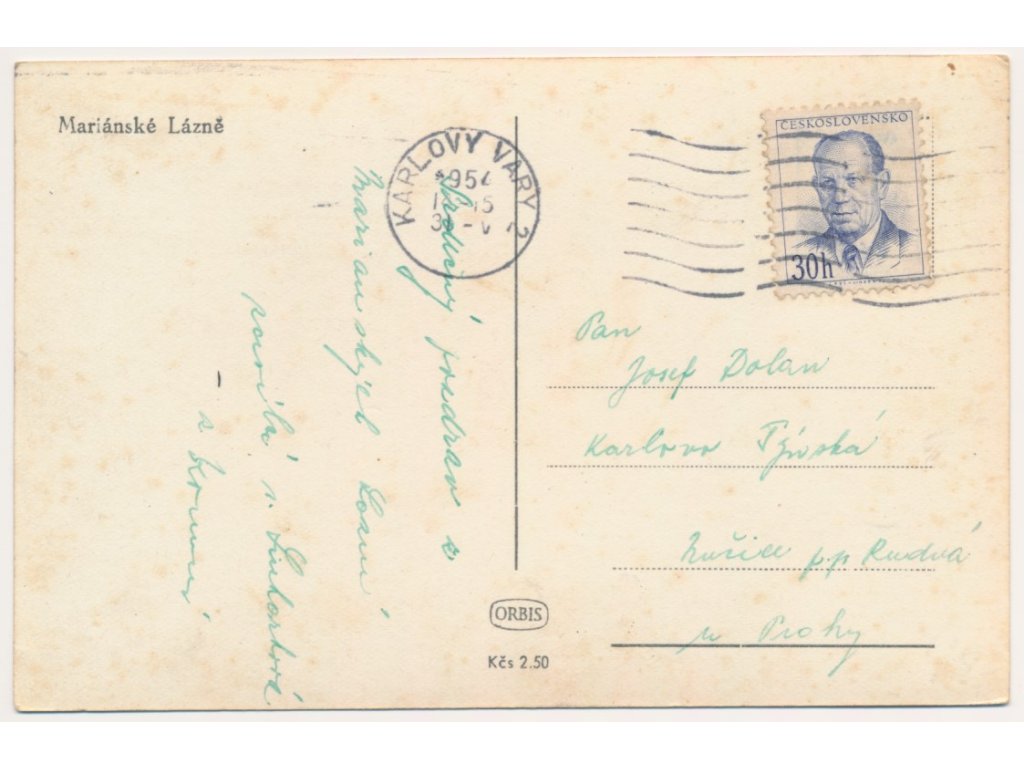 Mariánské Lázně
KARLOVY VARY 2
1954
ČESKOSLOVENSKO
30h
Srdečný pozdrav z
Marianskych Lazni
s.
z
Pan
Josef Dolan
Karlovo Týnská
p.p. Rudná
u Prahy
ORBIS
Kčs 2.50